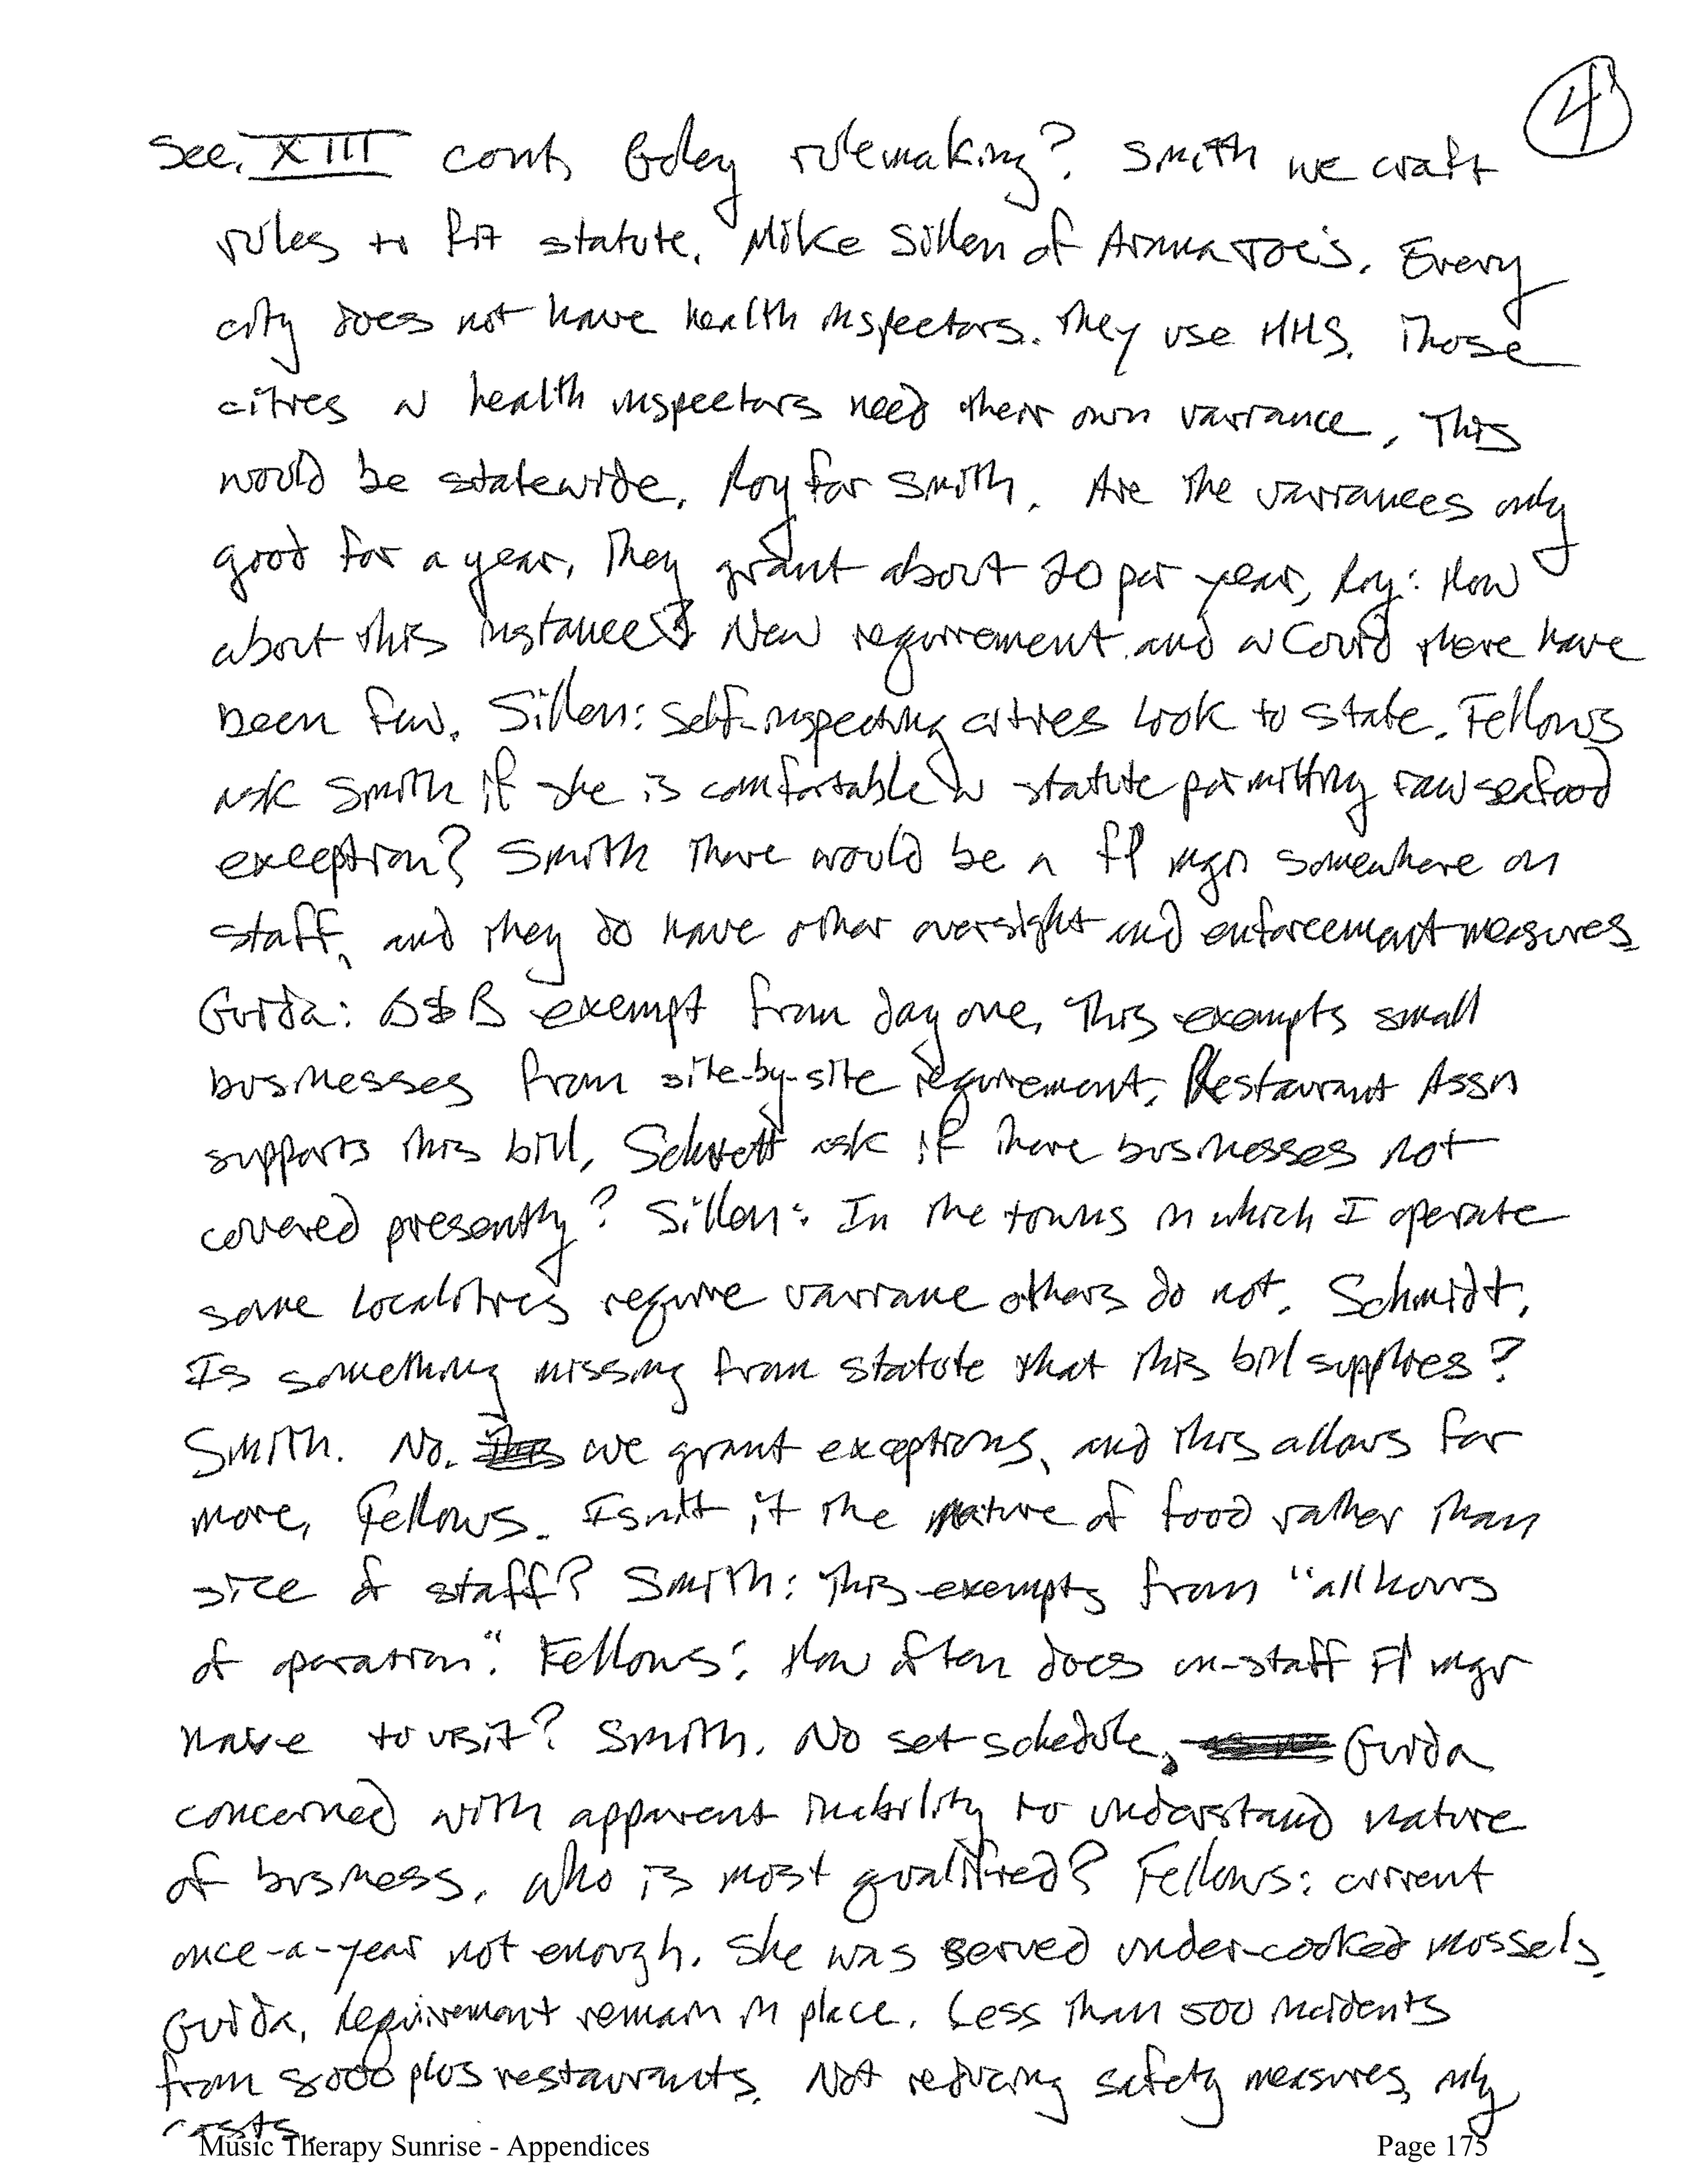 4
See. XIII cont, Edley rulemaking? Smith we craft
rules to fit statute. Mike Sillen of AnnaJoe's. Every
city does not have health inspectors. They use HHS. Those
cities w health inspectors need their own variance, This
would be statewide, Roy for Smith. Are the variances only
good for a year, They grant about 20 per year, Roy: How
about this instance? New requirement and w Covid there have
been few. Sillen: Self-inspecting cities look to state. Fellows
ask Smith if she is comfortable w statute permitting raw seafood
exception? Smith There would be a fp mgr somewhere on
staff, and they do have other oversight and enforcement measures.
Guida: B&B exempt from day one, This exempts small
businesses from site-by-site requirement, Restaurant Assn
supports this bill, Schmidt ask if there businesses not
covered presently? Sillen: In the towns in which I operate
some localities require variane others do not. Schmidt,
Is something missing from statute that this bill supplies?
Smith. No. we grant exceptions, and this allows for
more, Fellows. Isn't it the nature of food rather than
size of staff? Smith: This exempts from "all hours
of operation." Fellows: How often does on-staff FP mgr
have to visit? Smith. No set schedule, Guida
concerned with apparent inability to understand nature
of business, who is most qualified? Fellows: current
once-a-year not enough. She was served under-cooked mussels.
Guida, Requirement remain in place. Less than 500 incidents
from 8000 plus restaurants. Not reducing safety measures, only
costs.
Music Therapy Sunrise - Appendices Page 175